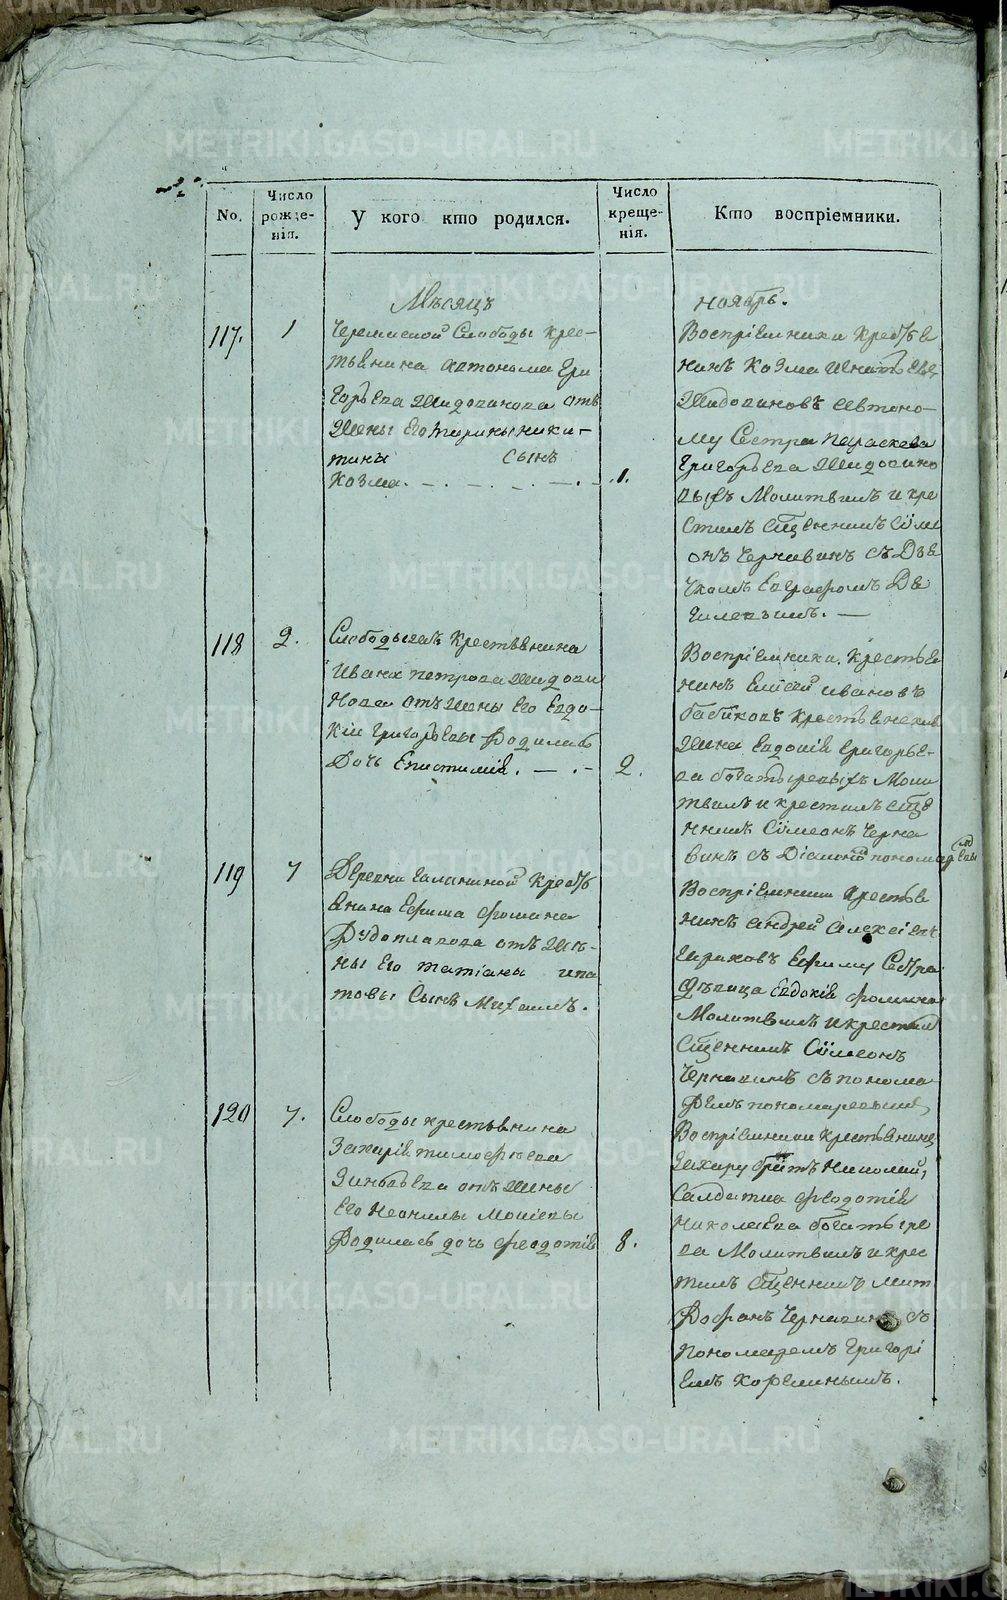 No.
Число рожде-нія.
У кого кто родился.
Число креще-нія.
Кто воспріемники.
Мѣсяцъ
ноябрь.
117.
1
Черемиской Слободы крес-
тьянина Автонома Гри
горьева Жидовинова отъ
жены его Ирины Ники-
тины сынъ
Козма.
1.
Воспріемники крестья
нинъ Козма Игнатьевъ
Жидовиновъ Автоно-
му сестра Параскева
Григорьева Жидовино
выхъ Молитвилъ и кре
стилъ Священникъ Сімε
онъ Чернавинъ съ Дья
чкомъ Евграфомъ
118
2.
Слободы крестьянина
Ивана Петрова Жидови
нова отъ жены его Евдо-
кіи Григорьевы родилась
дочь Епистимія.
2.
Воспріемники крестья
нинъ Елисей Ивановъ
Бабиковъ крестьянская
жена Евдокія Григорье-
ва Богатыревыхъ Моли
твилъ и крестилъ Свяще
нникъ Сімеонъ Черна
винъ съ
119
7
Деревни Галаниной крестья
янина Ефима Фомина
Рудоплавова отъ же-
ны его Татіаны Ипа
товы сынъ Михаилъ.
Воспріемники крестья
нинъ Андрей Алексіевъ
Ефиму сестра
дѣвица Евдокія Фомина
Молитвилъ и крестилъ
Священникъ Сімеонъ
Чернавинъ съ понома
ремъ Пономаревымъ
120
7.
Слободы крестьянина
Захарія Тимофѣева
Зиновьева отъ жены
его Неонилы Мокіевы
родилась дочь Феодотія
8.
Воспріемники крестьянина
Захару братъ Николай,
Салдатка Феодотія
Николаева Богатыре
ва Молитвилъ и крес
тилъ Священникъ Мит
рофанъ Чернавинъ съ
пономаремъ Григорі
емъ Корелинымъ.
METRIKI.GASO-URAL.RU